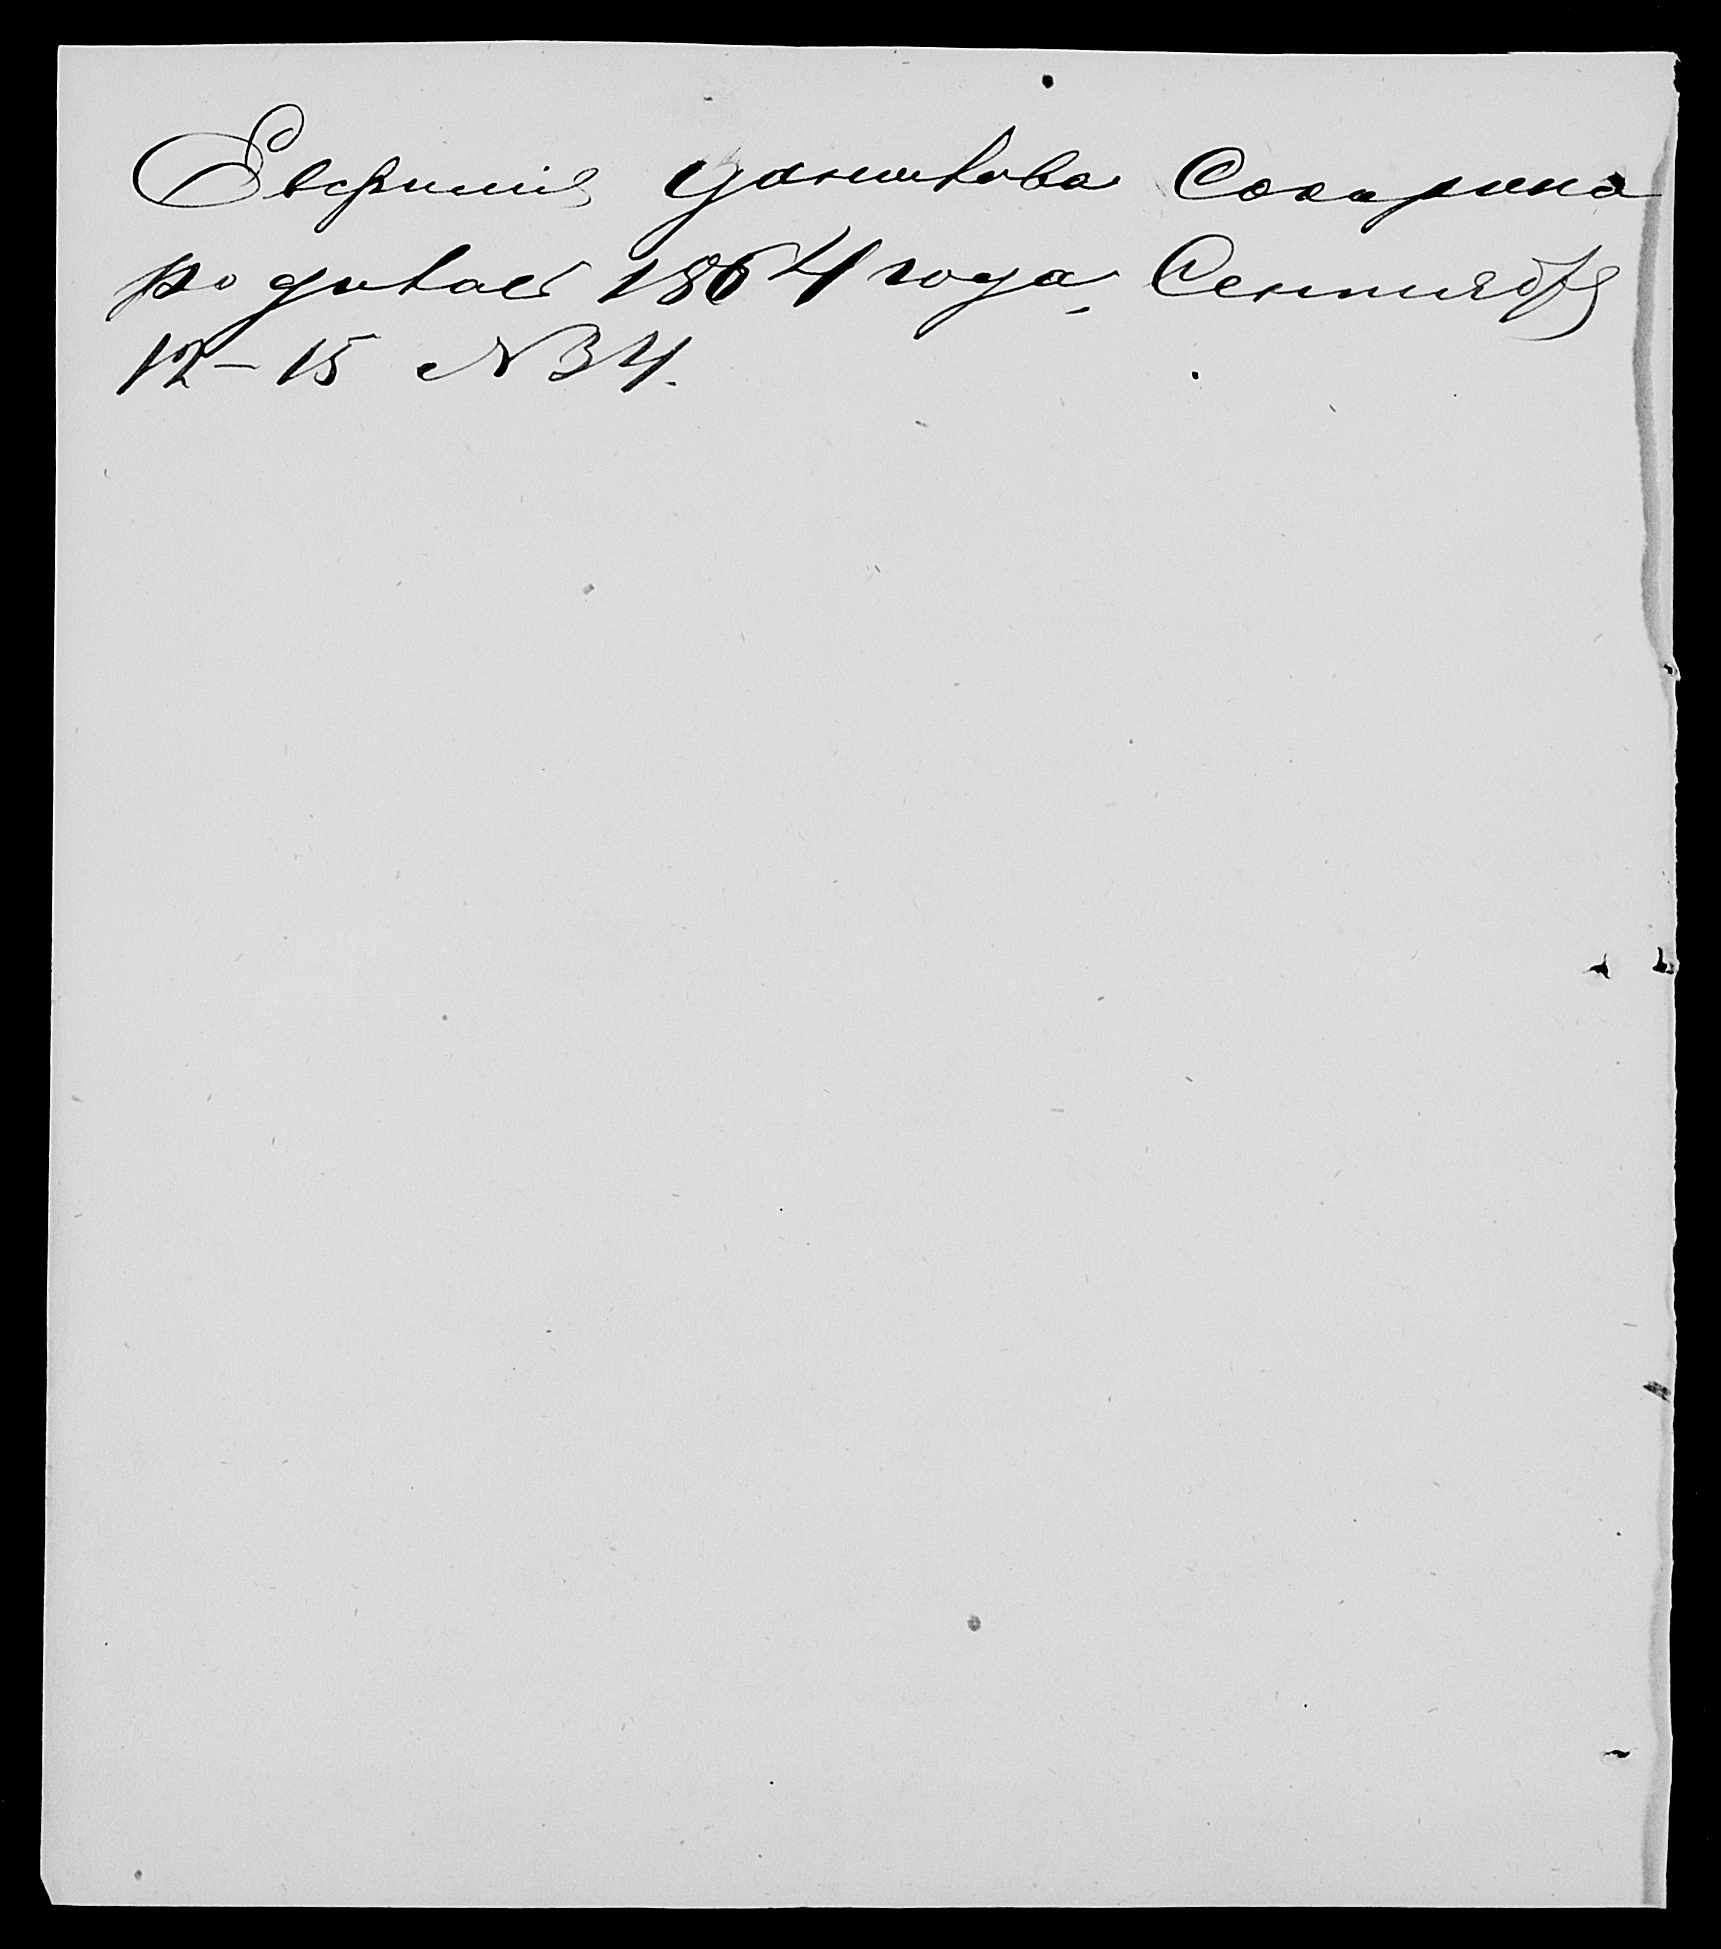 Евфимія Данилова Сахарина
родилась 1864 года, Сентября
12-15 №34.